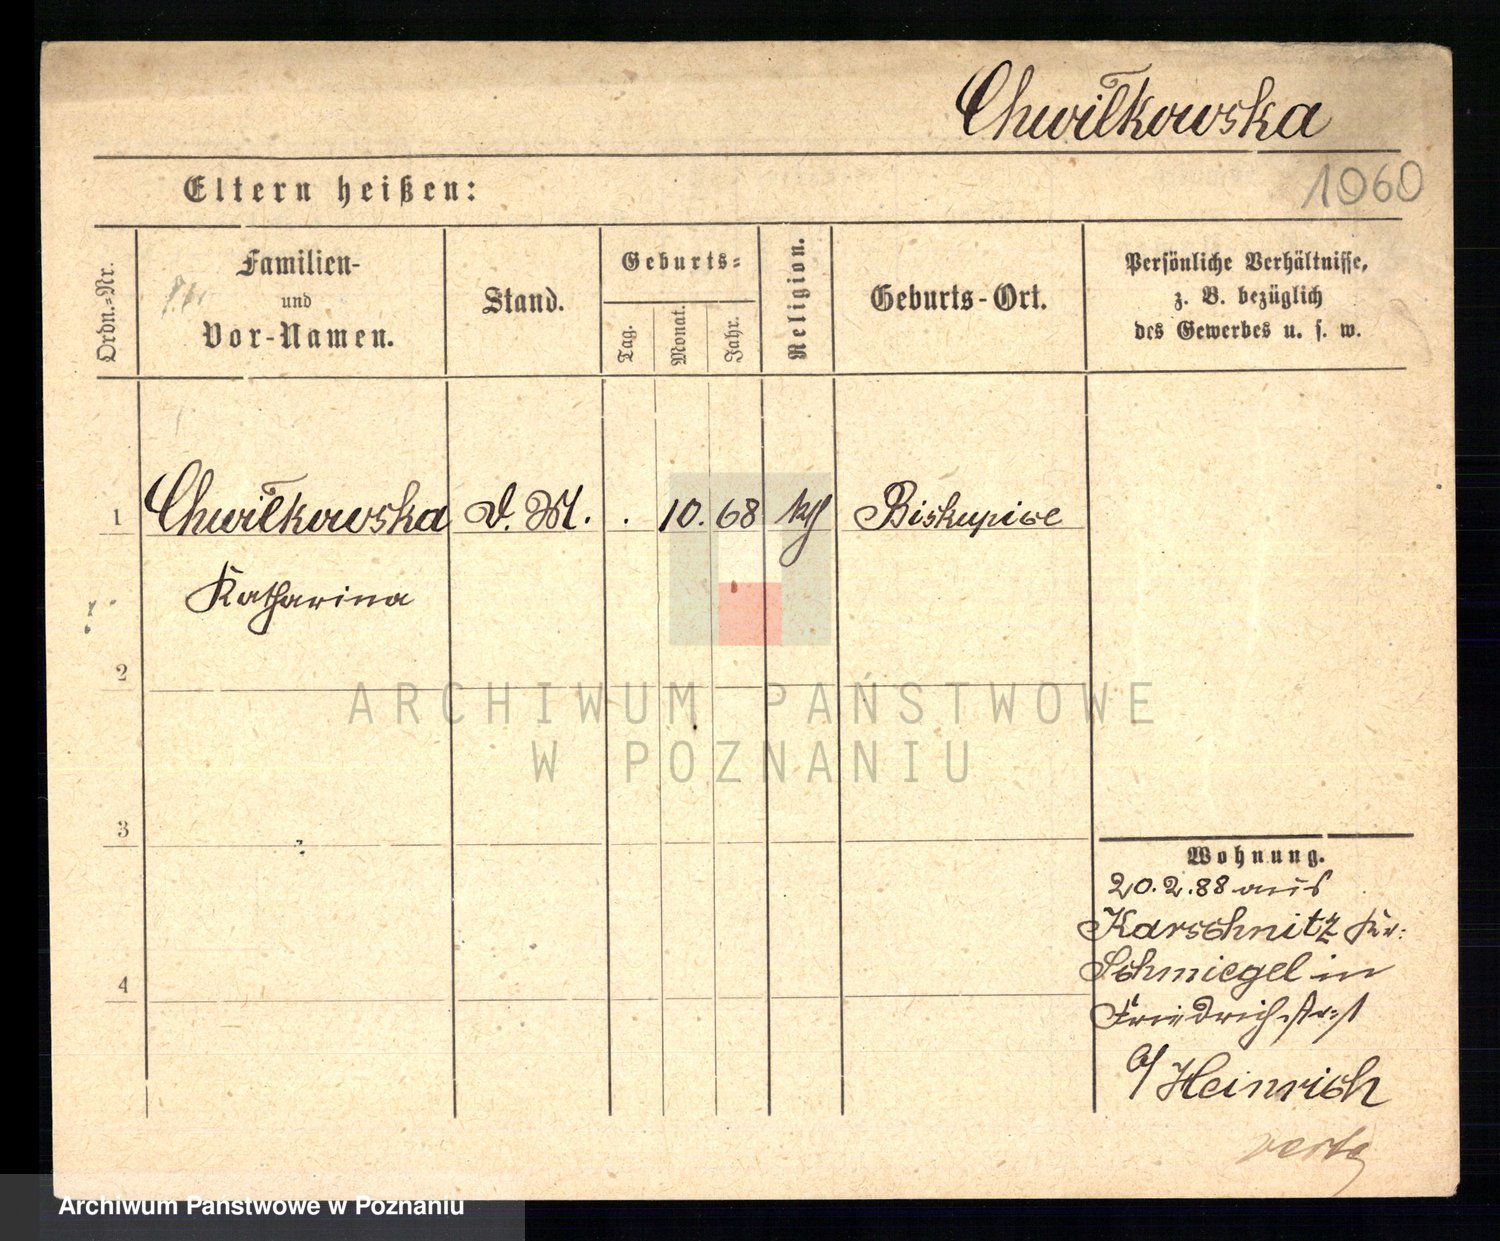 Chwiłkowska
1060
Eltern heißen:
Ordn.-Nr.
Familien-
und
Vor-Namen.
Stand.
Geburts-
Tag.
Monat.
Jahr.
Religion.
Geburts-Ort.
Persönliche Verhältnisse,
z. B. bezüglich
des Gewerbes u. s. w.
1 Chwiłkowska D. M. . 10. 68 kth Biskupice
Katharina
2
ARCHIWUM PAŃSTWOWE
W POZNANIU
3
Wohnung.
20.2.88 aus
Karschnitz Kr:
Schmiegel in
Friedrichstr.
b/ Heinrich
4
verte
Archiwum Państwowe w Poznaniu